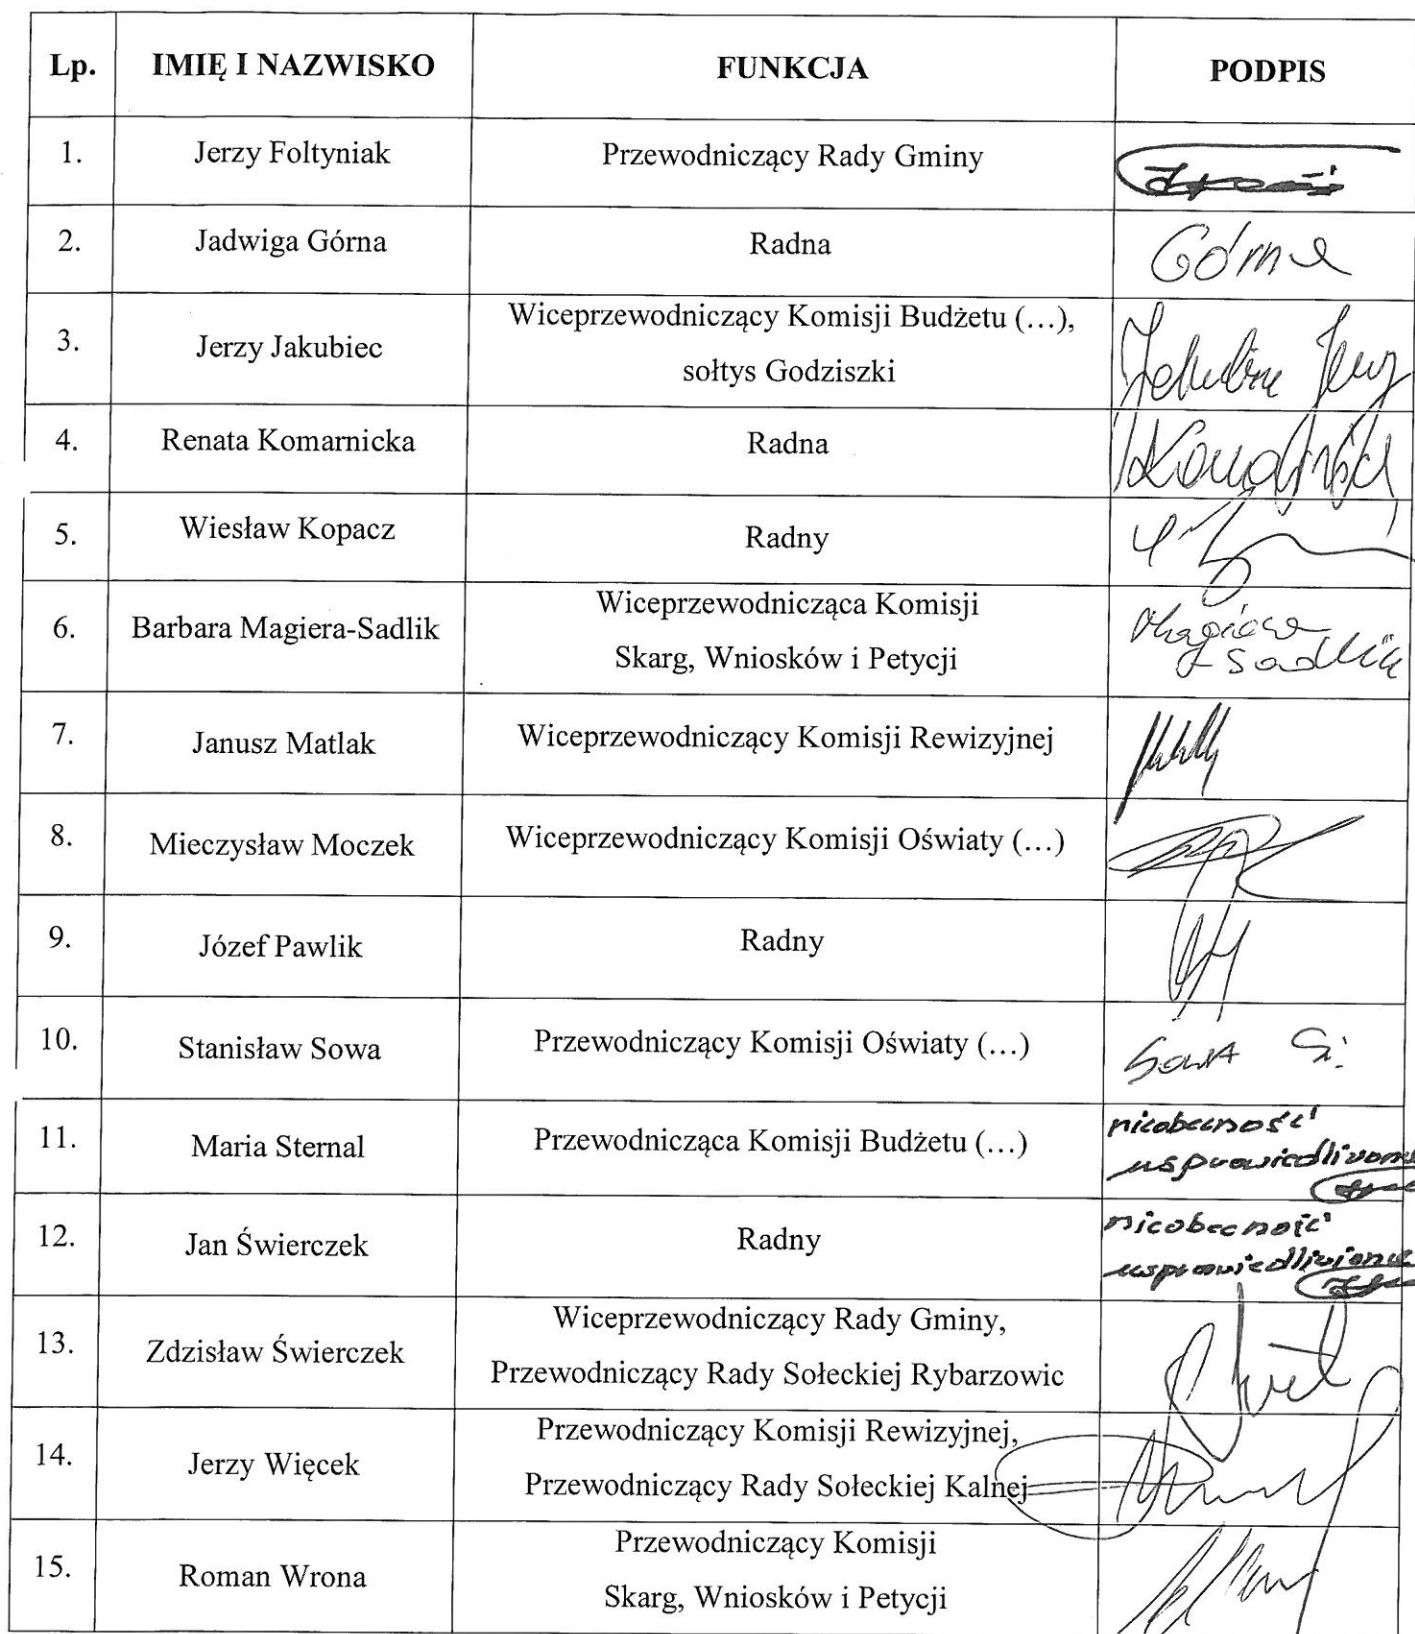 Lp. IMIĘ I NAZWISKO FUNKCJA PODPIS
1. Jerzy Foltyniak Przewodniczący Rady Gminy
2. Jadwiga Górna Radna Górna
3. Jerzy Jakubiec Wiceprzewodniczący Komisji Budżetu (…),
sołtys Godziszki
4. Renata Komarnicka Radna
5. Wiesław Kopacz Radny
6. Barbara Magiera-Sadlik Wiceprzewodnicząca Komisji Magiera
Skarg, Wniosków i Petycji Sadlik
7. Janusz Matlak Wiceprzewodniczący Komisji Rewizyjnej
8. Mieczysław Moczek Wiceprzewodniczący Komisji Oświaty (…)
9. Józef Pawlik Radny
10. Stanisław Sowa Przewodniczący Komisji Oświaty (…) Sowa S.
11. Maria Sternal Przewodnicząca Komisji Budżetu (…) nieobecność
usprawiedliwiona
12. Jan Świerczek Radny nieobecność
usprawiedliwiona
13. Zdzisław Świerczek Wiceprzewodniczący Rady Gminy,
Przewodniczący Rady Sołeckiej Rybarzowic
14. Jerzy Więcek Przewodniczący Komisji Rewizyjnej,
Przewodniczący Rady Sołeckiej Kalnej
15. Roman Wrona Przewodniczący Komisji
Skarg, Wniosków i Petycji